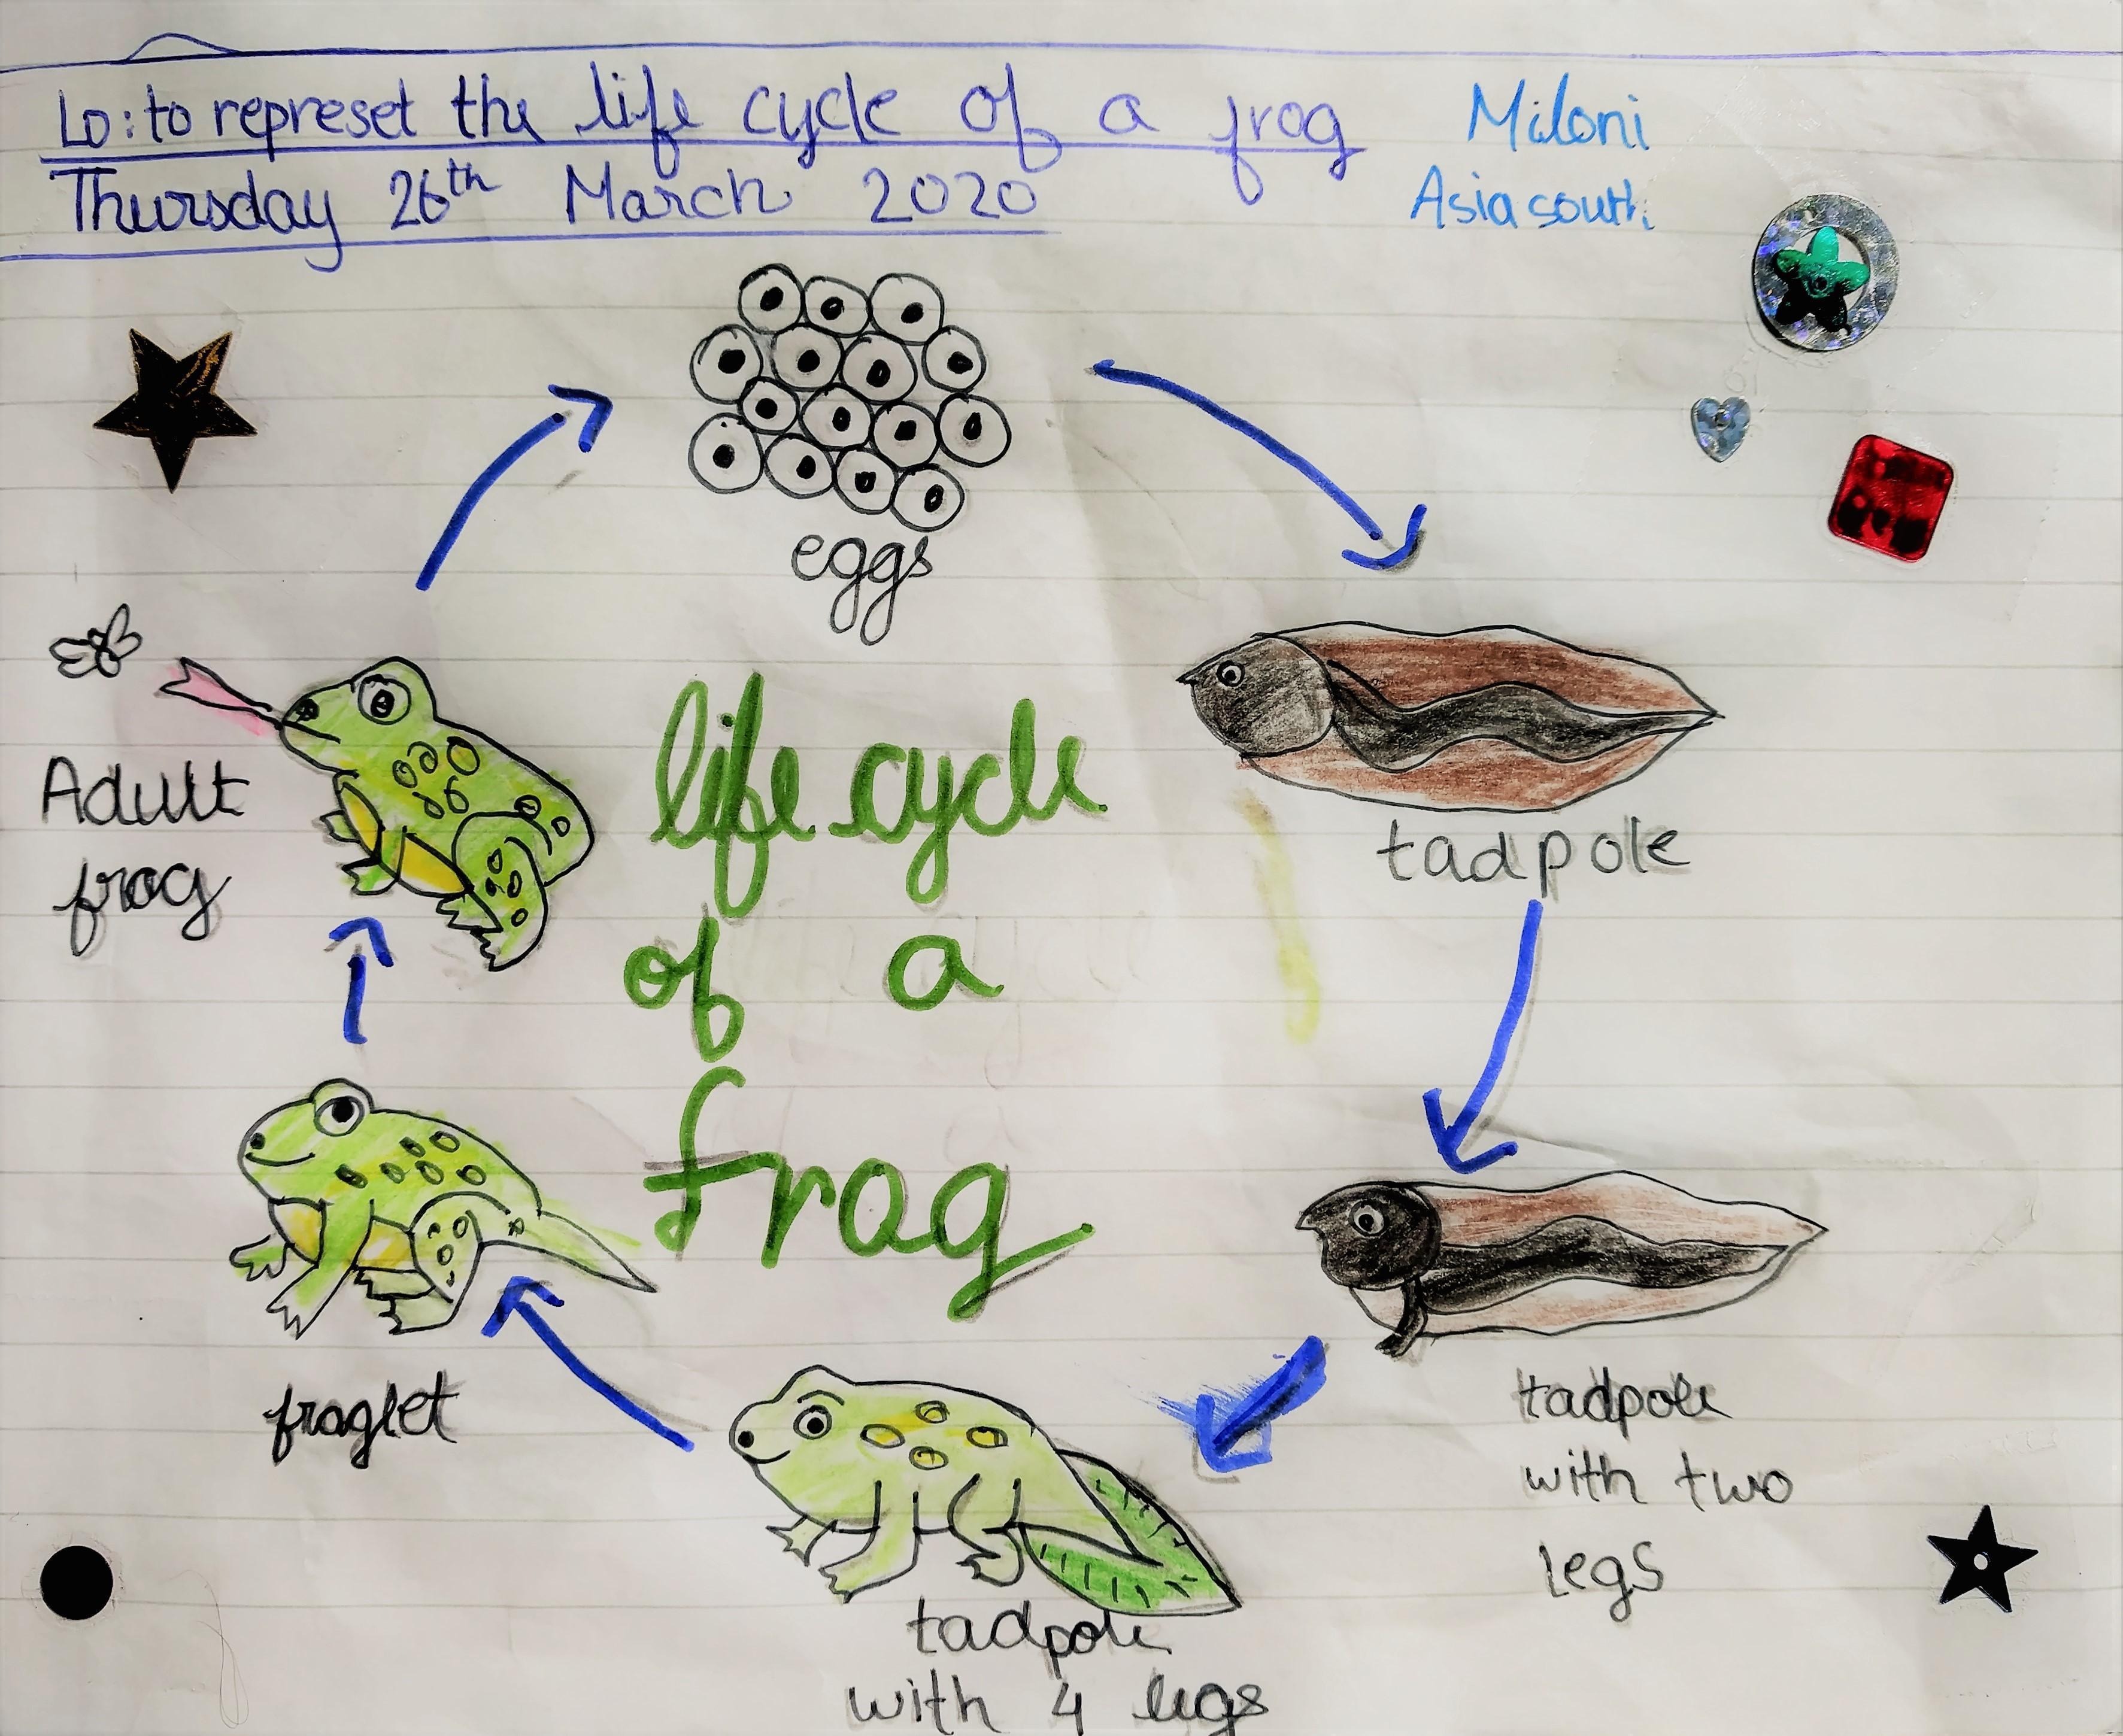 Lo: to represet the life cycle of a frog
Thursday 26th March 2020
Miloni
Asia south
eggs
tadpole
tadpole
with two
legs
tadpole
with 4 legs
froglet
Adult
frog
life cycle
of a
frog